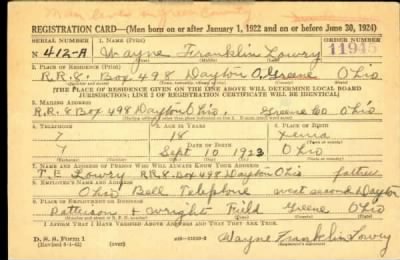 Man lives in Greene County
REGISTRATION CARD—(Men born on or after January 1, 1922 and on or before June 30, 1924)
SERIAL NUMBER 1. NAME (Print) ORDER NUMBER
N 412-A Wayne Franklin Lowry 11945
(First) (Middle) (Last)
2. PLACE OF RESIDENCE (Print)
R.R.8. Box 498 Dayton O. Greene Ohio
(Number and street) (Town, township, village, or city) (County) (State)
[THE PLACE OF RESIDENCE GIVEN ON THE LINE ABOVE WILL DETERMINE LOCAL BOARD
JURISDICTION; LINE 2 OF REGISTRATION CERTIFICATE WILL BE IDENTICAL]
3. MAILING ADDRESS
R.R.8. Box 498 Dayton Ohio. Greene Co Ohio
4. TELEPHONE 5. AGE IN YEARS 6. PLACE OF BIRTH
? 18 Xenia
DATE OF BIRTH
? Sept 10 1923 Ohio
7. NAME AND ADDRESS OF PERSON WHO WILL ALWAYS KNOW YOUR ADDRESS
T.E. Lowry R.R.8. Box 498 Dayton Ohio father
8. EMPLOYER'S NAME AND ADDRESS
Ohio Bell Telephone west second Dayton
9. PLACE OF EMPLOYMENT OR BUSINESS
Patterson & Wright Field Greene Ohio
I AFFIRM THAT I HAVE VERIFIED ABOVE ANSWERS AND THAT THEY ARE TRUE.
D. S. S. Form 1
Wayne Franklin Lowry